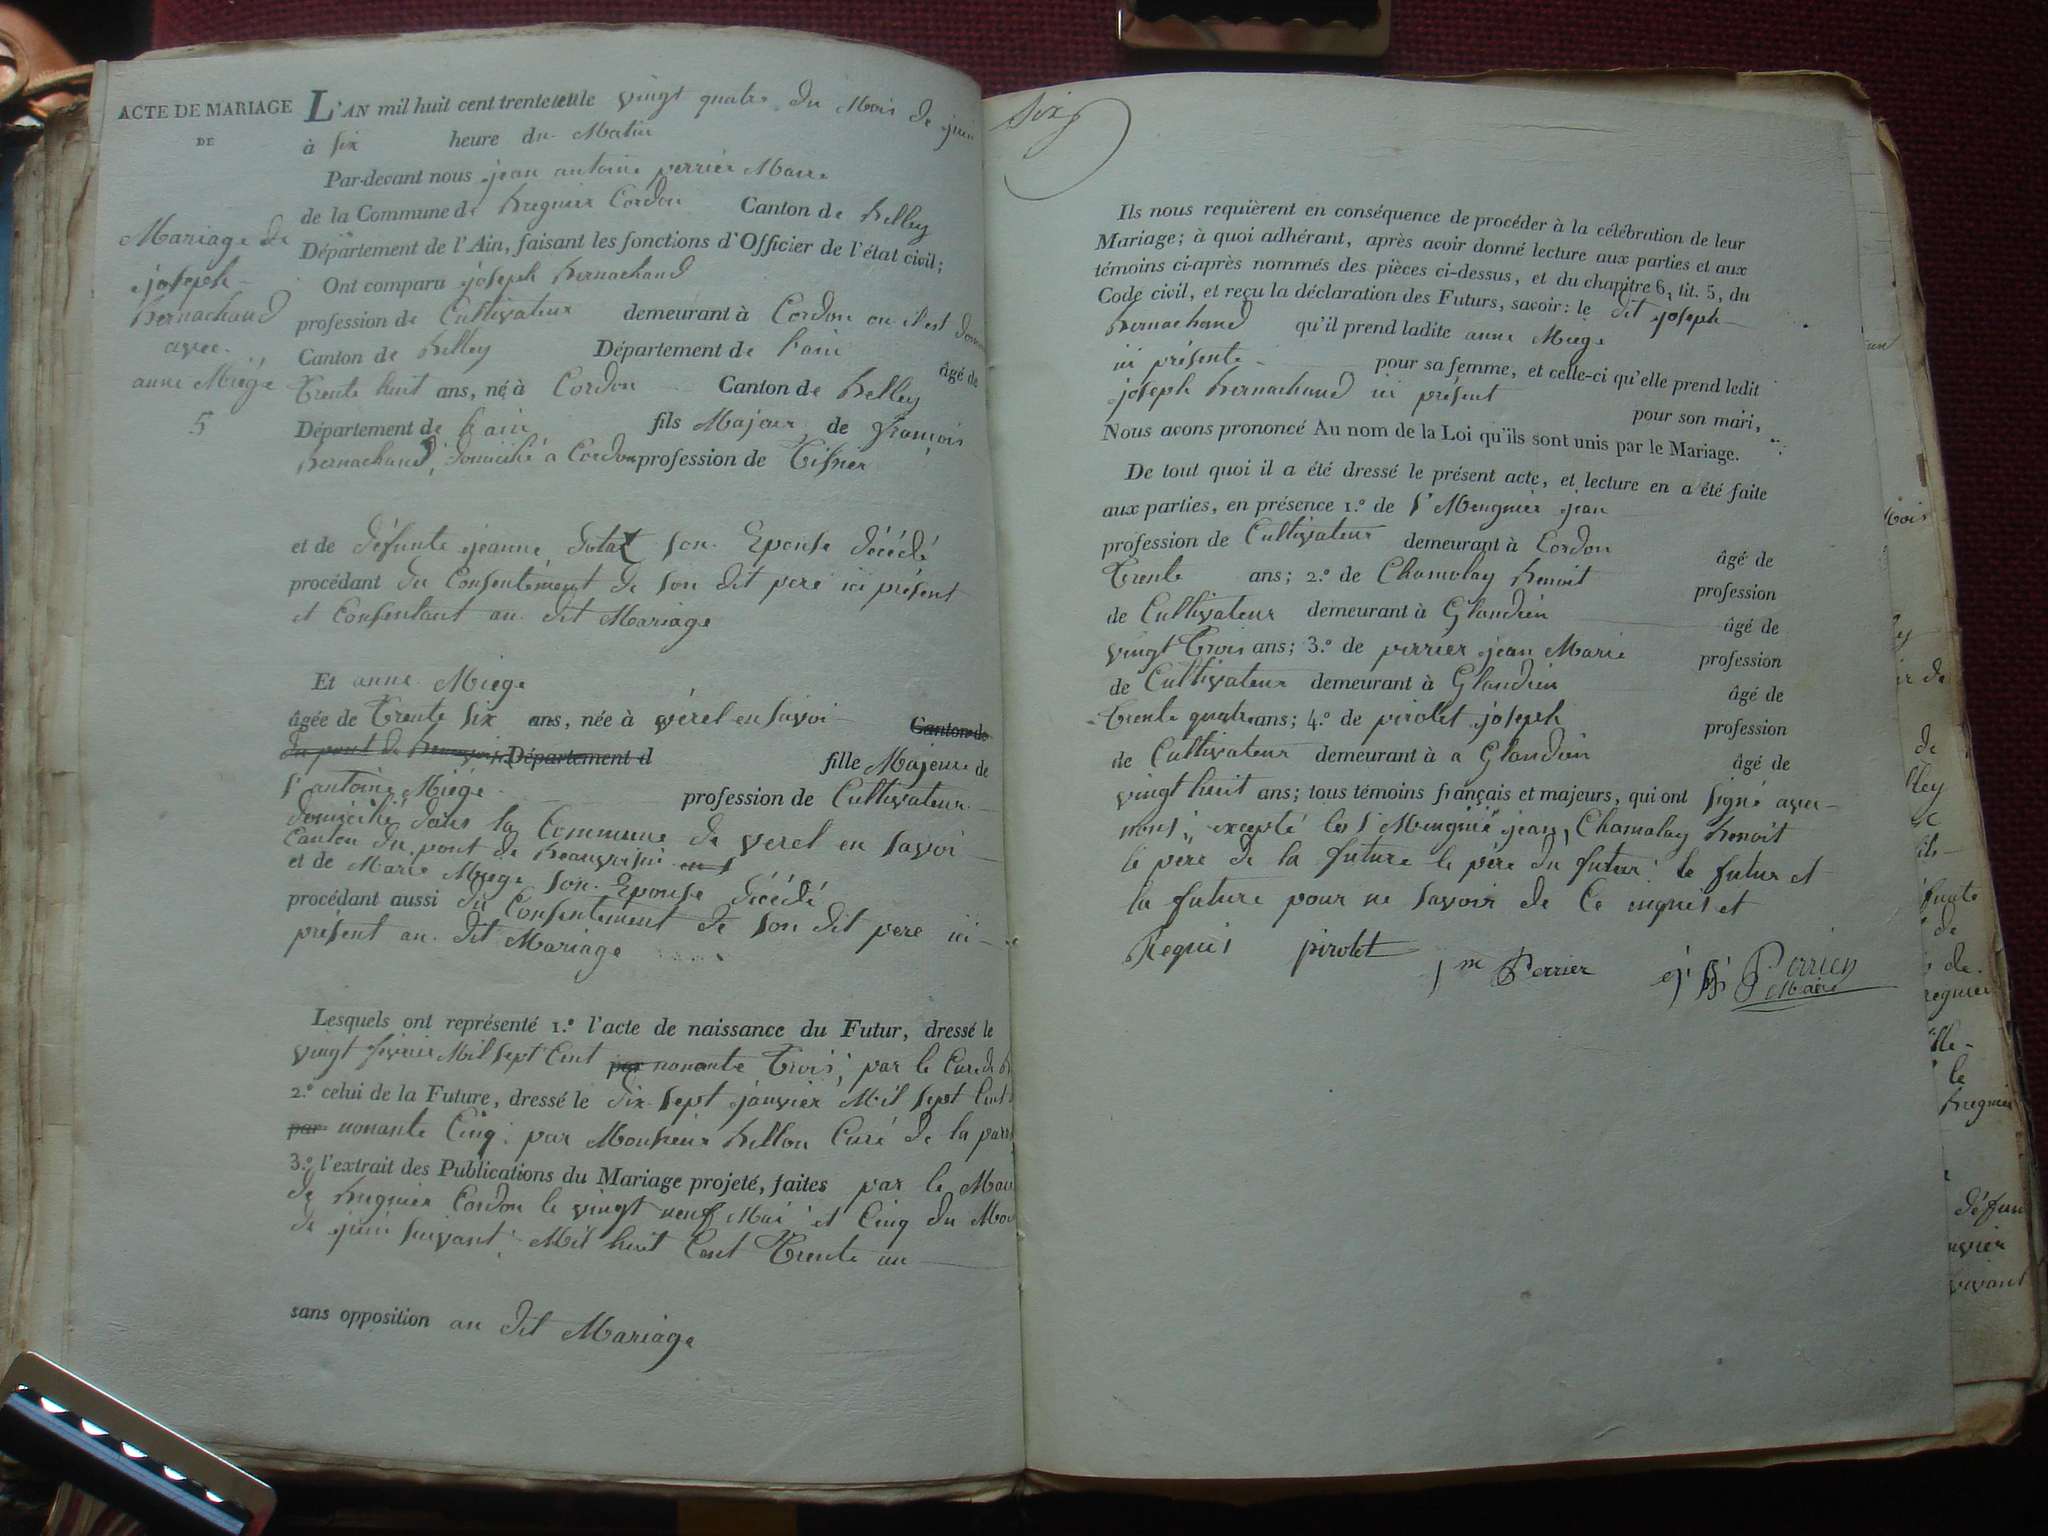 ACTE DE MARIAGE
DE
Mariage de
joseph
Bernachaud
avec
anne Miège
5
L'AN mil huit cent trente et un le vingt quatre du Mois de juin
à six heure du Matin
Par-devant nous jean antoine perrier Maire
de la Commune de Bregnier Cordon Canton de Belley
Département de l'Ain, faisant les fonctions d'Officier de l'état civil;
Ont comparu joseph Bernachaud
profession de Cultivateur demeurant à Cordon ou il est
Canton de Belley Département de l'ain âgé de
Trente huit ans, né à Cordon Canton de Belley
Département de l'ain fils Majeur de françois
Bernachaud, domicilié a Cordon profession de Tisser
et de défunte jeanne son Epouse décédé
procédant du Consentement de son dit pere ici présent
et Consentant au dit Mariage
Et anne Miege
âgée de Trente six ans, née à vérel en savoi Canton de
du pont de Beauvoisin Département d fille Majeure de
sr antoine Miége profession de Cultivateur
domicilié dans la Commune de verel en savoi
Canton du pont de Beauvoisin
et de Marie Miege son Epouse décédé
procédant aussi du Consentement de son dit pere ici
présent au dit Mariage
Lesquels ont représenté 1.º l'acte de naissance du Futur, dressé le
vingt février Mil sept Cent nonante Trois, par le Curé de
2.º celui de la Future, dressé le dix sept janvier Mil sept Cent
par nonante Cinq par Monsieur Bellon Curé de la
3.º l'extrait des Publications du Mariage projeté, faites par le Maire
de Bregnier Cordon le vingt neuf Mai et Cinq du Moi
de juin suivant Mil huit Cent Trente un
sans opposition au dit Mariage
Six
Ils nous requièrent en conséquence de procéder à la célébration de leur
Mariage; à quoi adhérant, après avoir donné lecture aux parties et aux
témoins ci-après nommés des pièces ci-dessus, et du chapitre 6, tit. 5, du
Code civil, et reçu la déclaration des Futurs, savoir: le dit joseph
Bernachaud qu'il prend ladite anne Miege
ici présente pour sa femme, et celle-ci qu'elle prend ledit
joseph Bernachaud ici présent pour son mari,
Nous avons prononcé Au nom de la Loi qu'ils sont unis par le Mariage.
De tout quoi il a été dressé le présent acte, et lecture en a été faite
aux parties, en présence 1.º de sr Meugnier jean
profession de Cultivateur demeurant à Cordon âgé de
Trente ans; 2.º de Chamolay Benoit profession
de Cultivateur demeurant à Glandieu âgé de
vingt Trois ans; 3.º de perrier jean Marie profession
de Cultivateur demeurant à Glandieu âgé de
Trente quatre ans; 4.º de pirolet joseph profession
de Cultivateur demeurant à a Glandieu âgé de
vingt huit ans; tous témoins français et majeurs, qui ont signé avec
nous, excepté les sr Meugnié jean, Chamalay Benoit
le père de la future le père du futur le futur et
la future pour ne savoir de Ce enquis et
Requis pirolet jm Perrier Perrier
Maire